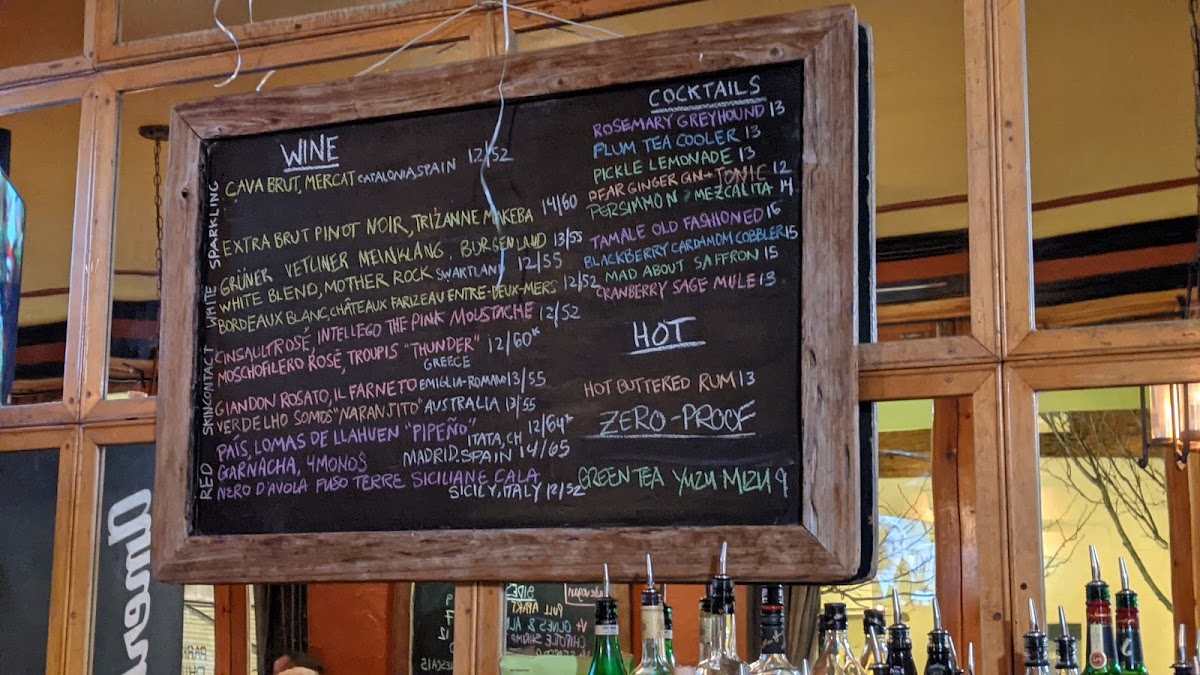 WINE
SPARKLING
CAVA BRUT, MERCAT CATALONIA, SPAIN 12/52
EXTRA BRUT PINOT NOIR, TRIZANNE MAKEBA 14/60
WHITE
GRÜNER VETLINER MEINKLANG, BURGENLAND 13/55
WHITE BLEND, MOTHER ROCK SWARTLAND 12/55
BORDEAUX BLANC, CHÂTEAUX FARIZEAU ENTRE-DEUX-MERS 12/52
SKINCONTACT
CINSAULT ROSÉ, INTELLEGO THE PINK MOUSTACHE 12/52
MOSCHOFILERO ROSÉ, TROUPIS "THUNDER" 12/60*
GREECE
GIANDON ROSATO, IL FARNETO EMIGLIA-ROMANO 13/55
VERDELHO SOMOS "NARANJITO" AUSTRALIA 13/55
RED
PAÍS, LOMAS DE LLAHUEN "PIPEÑO" 12/64*
ITATA, CH
GARNACHA, 4MONOS MADRID, SPAIN 14/65
NERO D'AVOLA FUSO TERRE SICILIANE CALA
SICILY, ITALY 12/52
COCKTAILS
ROSEMARY GREYHOUND 13
PLUM TEA COOLER 13
PICKLE LEMONADE 13
PEAR GINGER GIN + TONIC 12
PERSIMMON MEZCALITA 14
TAMALE OLD FASHIONED 16
BLACKBERRY CARDAMOM COBBLER 15
MAD ABOUT SAFFRON 15
CRANBERRY SAGE MULE 13
HOT
HOT BUTTERED RUM 13
ZERO-PROOF
GREEN TEA YUZU MIZU 9
SIDES
PULL APART
OLIVES & AL